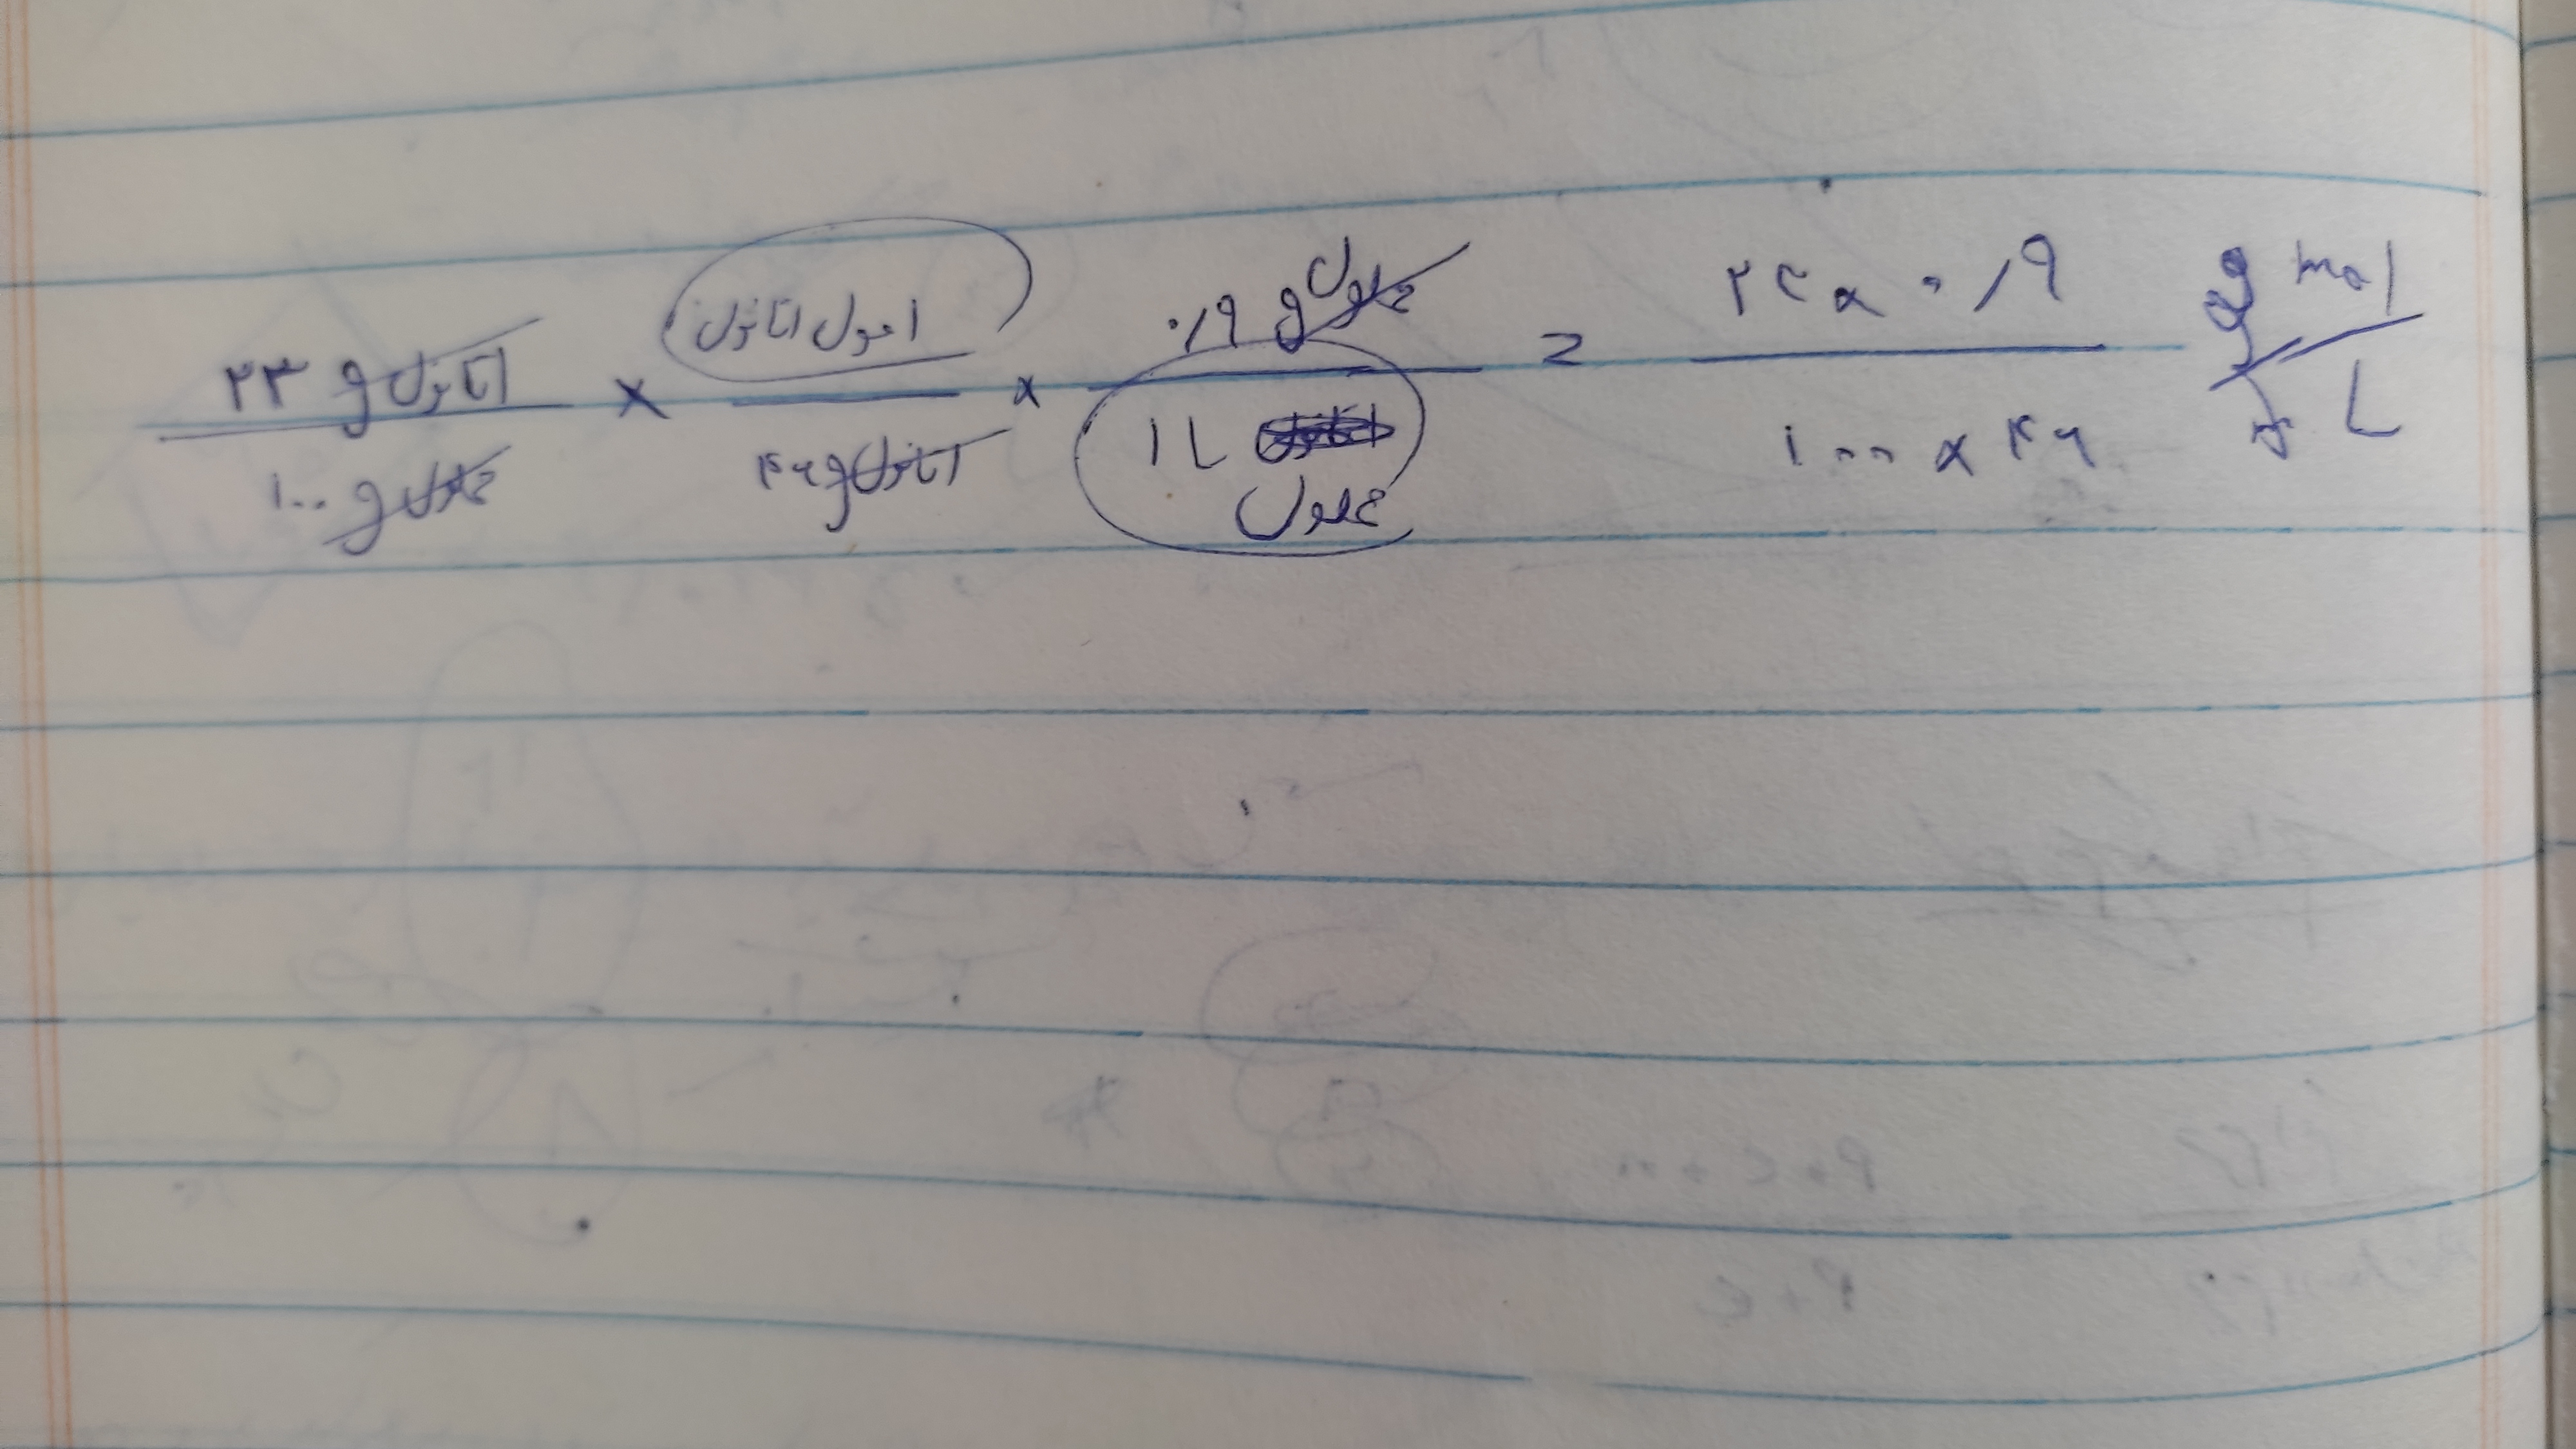 ۲۳ g اتانول / ۱۰۰ g محلول × ۱ مول اتانول / ۴۶ g اتانول × ۰/۹ g محلول / ۱ L محلول = ۲۳ × ۰/۹ / ۱۰۰ × ۴۶ mol / L